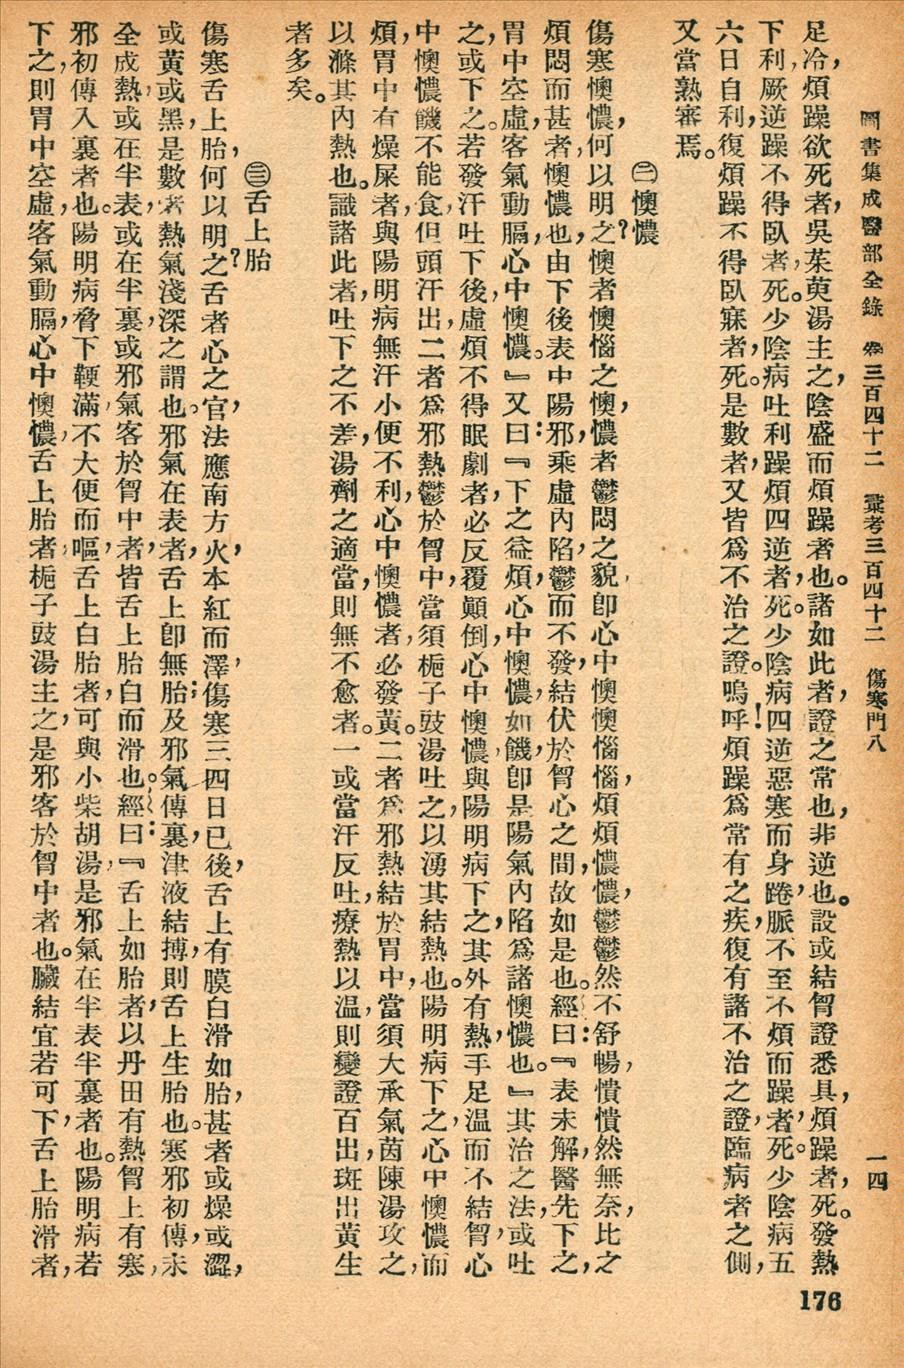 圖書集成醫部全錄　卷三百四十二　彙考三百四十二　傷寒門八　一四
足冷，煩躁欲死者，吳茱萸湯主之，陰盛而煩躁者也。諸如此者，證之常也，非逆也。設或結胷證悉具，煩躁者，死。發熱
下利，厥逆躁不得臥者，死。少陰病吐利躁煩四逆者，死。少陰病四逆惡寒而身踡，脈不至不煩而躁者，死。少陰病五
六日自利，復煩躁不得臥寐者，死。是數者，又皆爲不治之證。嗚呼！煩躁爲常有之疾，復有諸不治之證，臨病者之側，
又當熟審焉。
㊁懊憹
傷寒懊憹，何以明之？懊者懊惱之懊，憹者鬱悶之貌，卽心中懊懊惱惱，煩煩憹憹，鬱鬱然不舒暢，憒憒然無奈，比之
煩悶而甚者，懊憹也，由下後表中陽邪，乘虛內陷，鬱而不發，結伏於胷心之間，故如是也。經曰：『表未解醫先下之，
胃中空虛，客氣動膈，心中懊憹。』又曰：『下之益煩，心中懊憹，如饑，卽是陽氣內陷爲諸懊憹也。』其治之法，或吐
之，或下之。若發汗吐下後，虛煩不得眠劇者，必反覆顚倒，心中懊憹，與陽明病下之，其外有熱，手足溫而不結胷，心
中懊憹，饑不能食，但頭汗出，二者爲邪熱鬱於胷中，當須梔子豉湯吐之，以湧其結熱也。陽明病下之，心中懊憹而
煩，胃中有燥屎者，與陽明病無汗小便不利，心中懊憹者，必發黃。二者爲邪熱結於胃中，當須大承氣茵陳湯攻之，
以滌其內熱也。識諸此者，吐下之不差，湯劑之適當，則無不愈者。一或當汗反吐，療熱以溫，則變證百出，斑出黃生
者多矣。
㊂舌上胎
傷寒舌上胎，何以明之？舌者心之官，法應南方火，本紅而澤，傷寒三四日已後，舌上有膜白滑如胎，甚者或燥或澀，
或黃或黑，是數者熱氣淺深之謂也。邪氣在表者，舌上卽無胎；及邪氣傳裏，津液結搏，則舌上生胎也。寒邪初傳，未
全成熱，或在半表，或在半裏，或邪氣客於胷中者，皆舌上胎白而滑也。經曰：『舌上如胎者，以丹田有熱，胷上有寒，
邪初傳入裏者也。陽明病脅下鞕滿，不大便而嘔，舌上白胎者，可與小柴胡湯，是邪氣在半表半裏者也。陽明病若
下之，則胃中空虛，客氣動膈，心中懊憹，舌上胎者，梔子豉湯主之，是邪客於胷中者也。臟結宜若可下，舌上胎滑者，
176